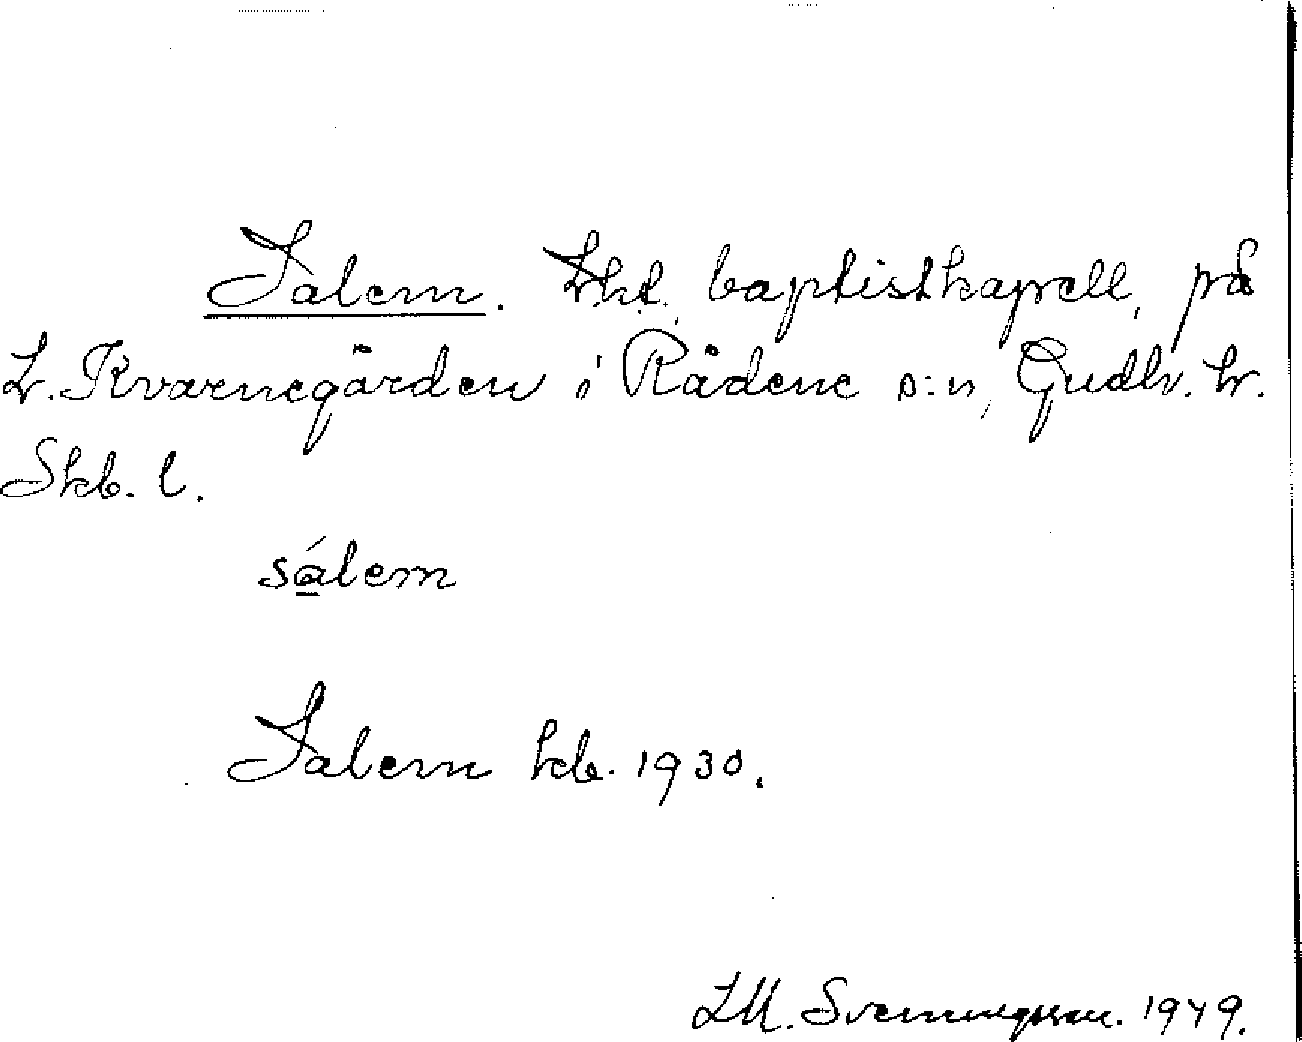 Salem. Lht, baptistkapell, på
L. Kvarnegården i Rådene s:n, Gudh. hr.
Skb. l.
sálem
Salem hcb. 1930.
LM. Svenningsson. 1949.